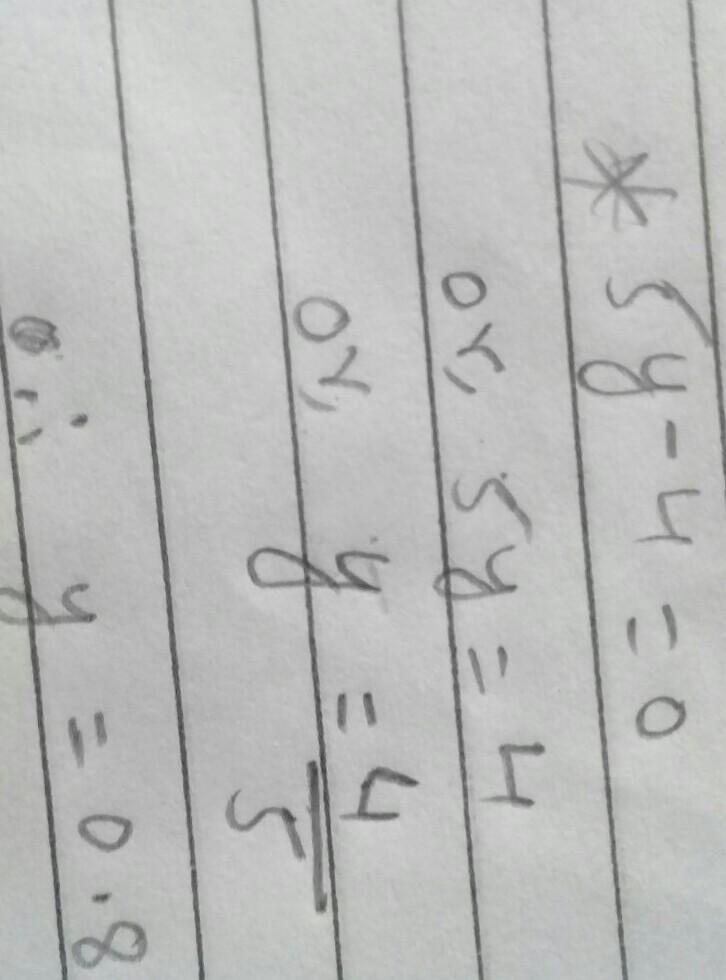 * 5y - 4 = 0
or, 5y = 4
or, y = 4/5
∴ y = 0.8